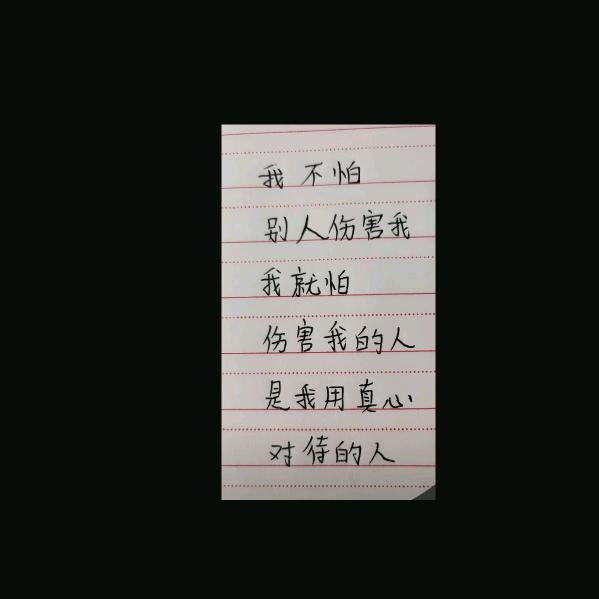 我不怕
别人伤害我
我就怕
伤害我的人
是我用真心
对待的人